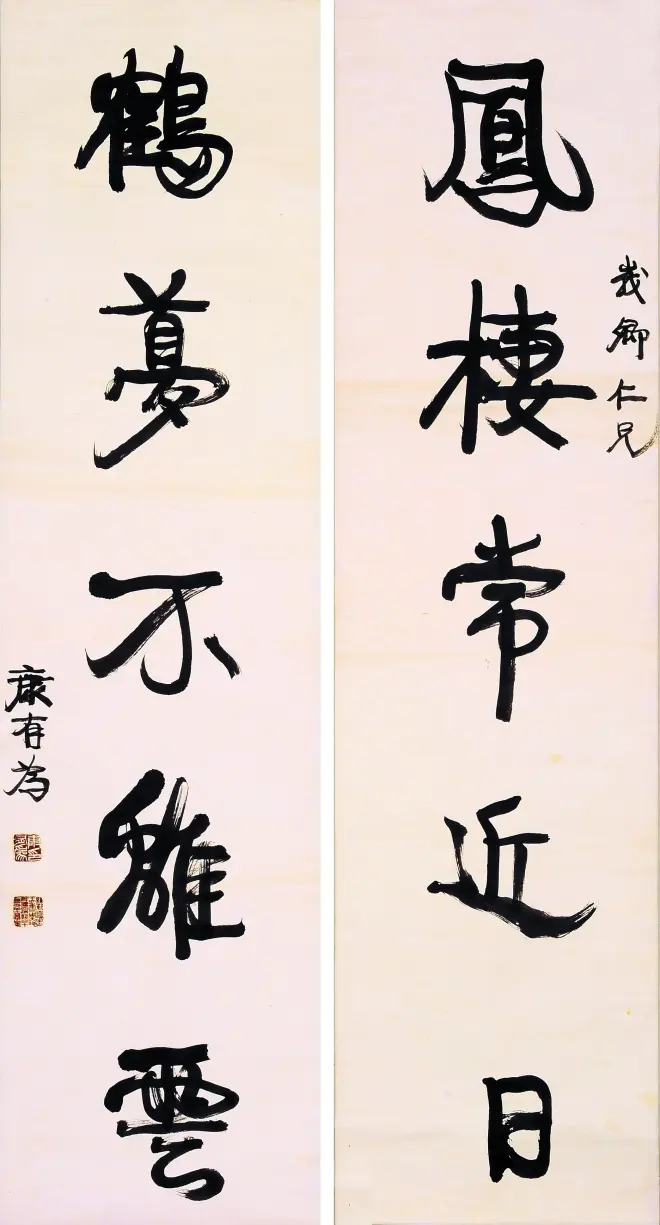 卿仁兄
鳳棲常近日
鶴夢不離雲
康有為